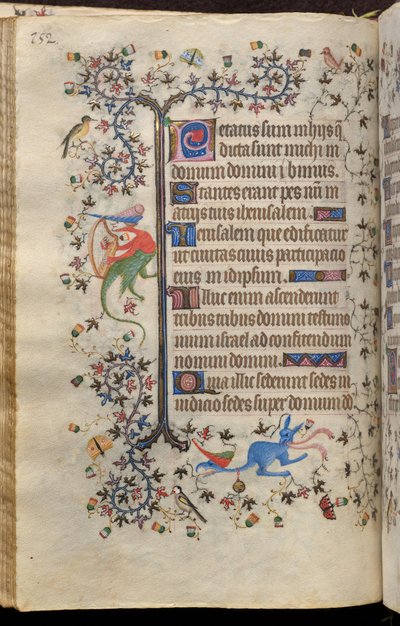 Letatus sum in hys q
dicta sunt michi in
domum domini ibimus.
Stantes erant in
atrys tuis iherusalem.
Iherusalem que edificatur
ut civitas cuius participacio
eius in idipsum.
Illuc enim ascenderunt
tribus tribus domini testimo
nium israel ad confitendum
nomini domini.
Quia illic sederunt sedes in
iudicio sedes super domum